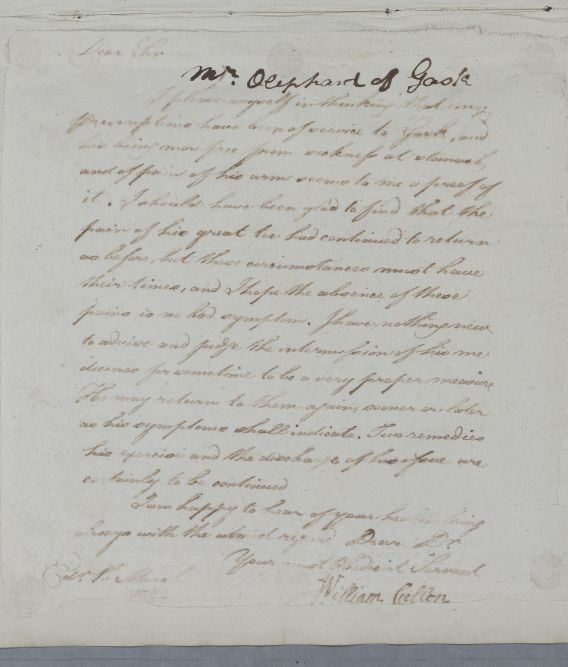 Dear Sir
Mr. Oliphard of Gask
I please myself in thinking that my
prescriptions have been of service to Gask, and
his being more free from sickness at stomach
and of pain of his arm seems to me a proof of
it. I should have been glad to find that the
pain of his great toe had continued to return
as before, but these circumstances must have
their times, and I hope the absence of those
pains is no bad symptom. I have nothing new
to advise and judge the intermission of his me
dicines for sometime to be a very proper measure
He may return to them again sooner or later
as his symptoms shall indicate. Two remedies
his exercise and the discharge of his issue are
certainly to be continued
I am happy to hear of your health being
always with the utmost regard Dear Dr.
Your most Obedient Servant
William Cullen
Edr.